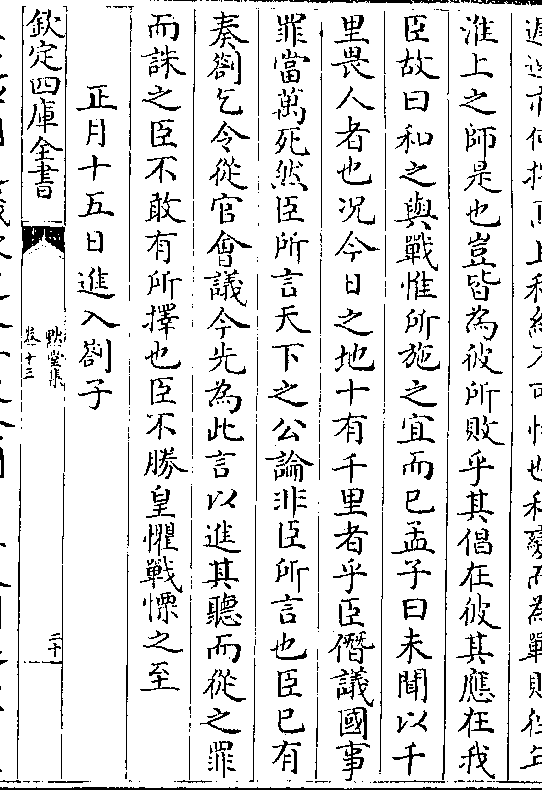 不可恃也和變而為戰則往年
淮上之師是也豈皆為彼所敗乎其倡在彼其應在我
臣故曰和之與戰惟所施之宜而已孟子曰未聞以千
里畏人者也况今日之地十有千里者乎臣僭議國事
罪當萬死然臣所言天下之公論非臣所言也臣已有
奏劄乞令從官會議今先為此言以進其聽而從之罪
而誅之臣不敢有所擇也臣不勝皇懼戰慄之至
正月十五日進入劄子
欽定四庫全書
默堂集
卷十三
二十